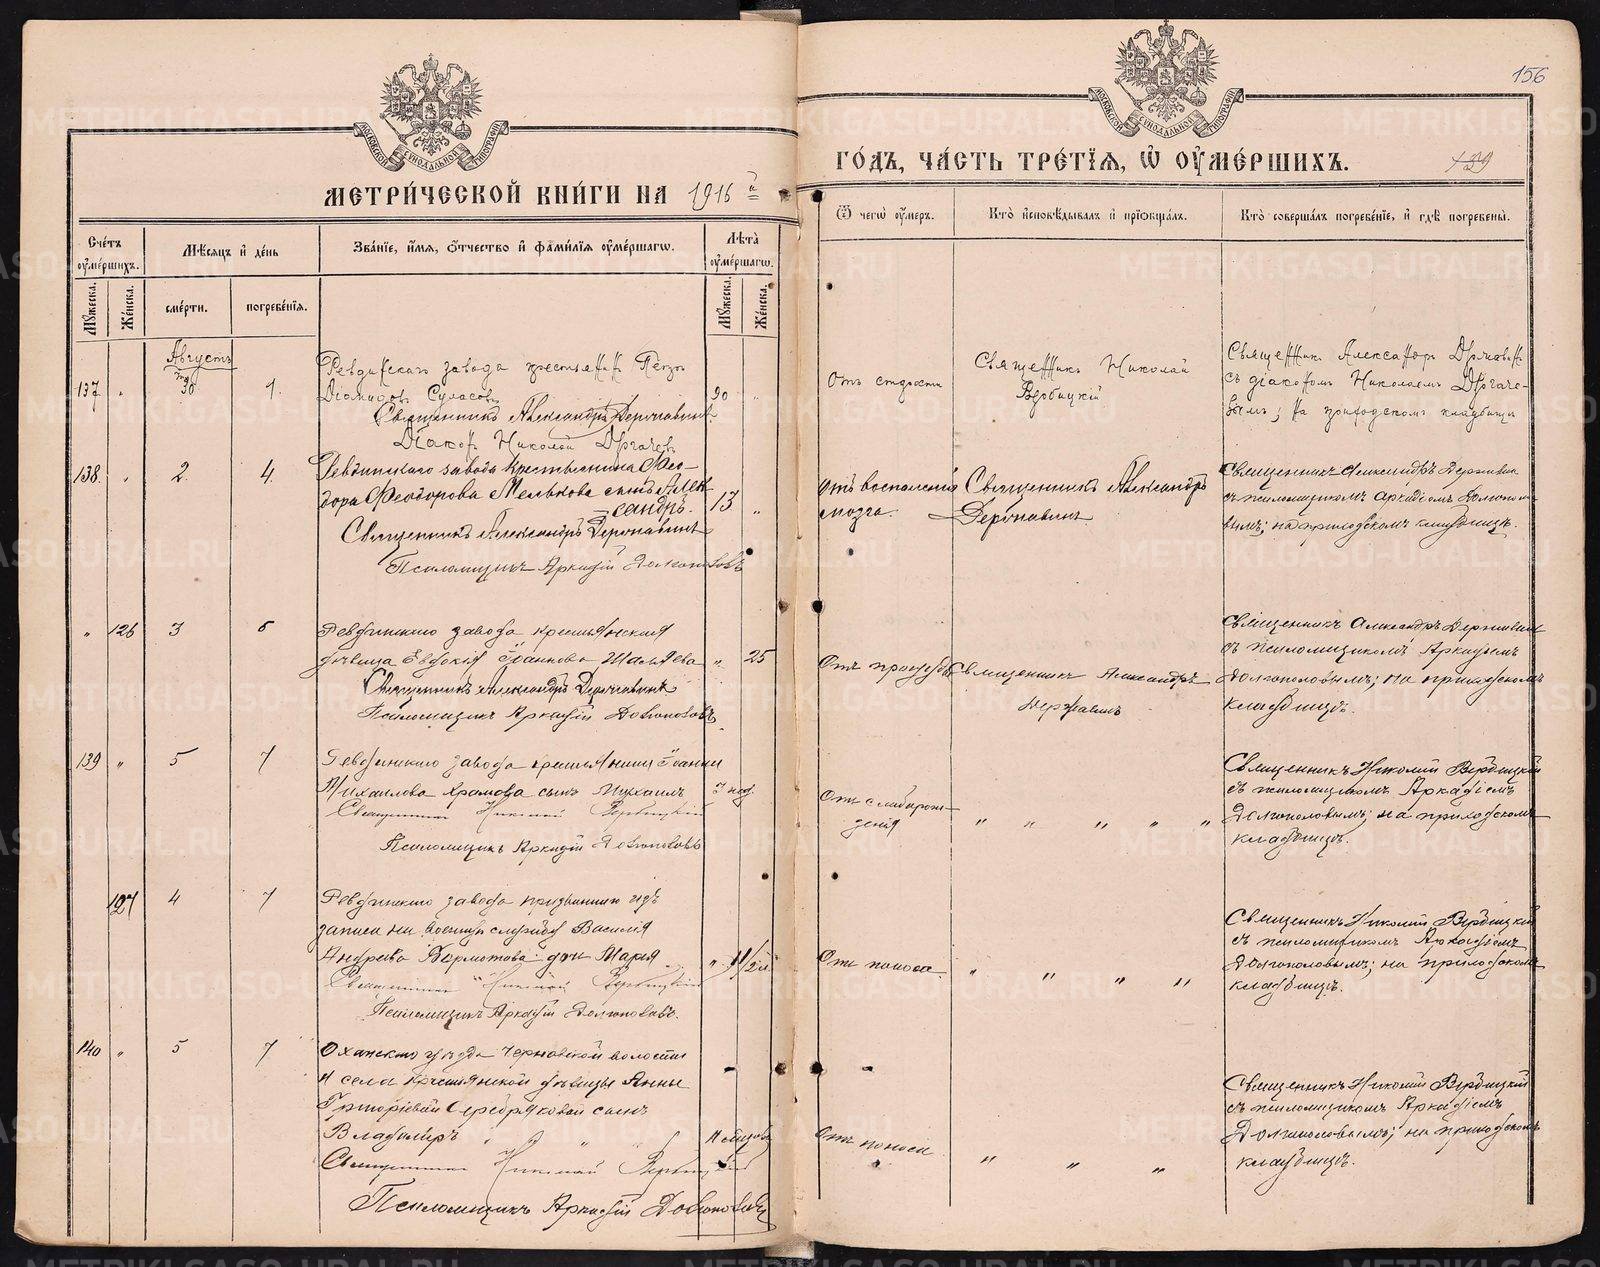 156
МОСКОВСКОЙ СѴНОДАЛЬНОЙ ТИПОГРАФІИ
МОСКОВСКОЙ СѴНОДАЛЬНОЙ ТИПОГРАФІИ
МЕТРИ́ЧЕСКОЙ КНИ́ГИ НА 1916 й
ГО́ДЪ, ЧА́СТЬ ТРЕ́ТІѦ, Ѡ҆ ОУ҆МЕ́РШИХЪ.
139
Сче́тъ оу҆ме́ршихъ.
Мꙋ́жеска.
Же́нска.
Мѣ́сѧцъ и҆ де́нь
сме́рти.
погребе́нїѧ.
Зва́нїе, и҆́мѧ, ѻ҆́тчество и҆ фамѝлїѧ оу҆ме́ршагѡ.
Лѣ́та оу҆ме́ршагѡ.
Мꙋ́жеска.
Же́нска.
Ѿ чегѡ̀ оу҆́меръ.
Кто̀ и҆сповѣ́дывалъ и҆ прїѡбща́лъ.
Кто̀ соверша́лъ погребе́нїе, и҆ гдѣ̀ погребены̀.
Августъ
137 " 30 1.
Ревдинскаго завода крестьянинъ Петръ
Діомидовъ
90 "
Священникъ Александръ Державинъ
Діаконъ Николай Дягачевъ
Отъ старости
Священникъ Николай
Вербицкій
Священникъ Александръ Державинъ
съ діакономъ Николаемъ Дягаче-
вымъ; на приходскомъ кладбищѣ
138. " 2. 4.
Ревдинскаго завода крестьянина Ѳео-
дора Ѳеодорова Мелькова сынъ Алек-
сандръ.
13 "
Священникъ Александръ Державинъ
Псаломщикъ Аркадій Долгополовъ
Отъ воспаленія
мозга.
Священникъ Александръ
Державинъ
Священникъ Александръ Державинъ
съ псаломщикомъ Аркадіемъ Долгополо-
вымъ; на приходскомъ кладбищѣ.
" 126 3 5
Ревдинскаго завода крестьянская
дѣвица Евдокія Іоаннова
" 25
Священникъ Александръ Державинъ
Псаломщикъ Аркадій Долгополовъ
Отъ простуды
Священникъ Александръ
Державинъ
Священникъ Александръ Державинъ
съ псаломщикомъ Аркадіемъ
Долгополовымъ; на приходскомъ
кладбищѣ.
139 " 5 7
Ревдинскаго завода крестьянина Іоанна
Михаилова Храмова сынъ Михаилъ
3 нед.
Священникъ Николай Вербицкій
Псаломщикъ Аркадій Долгополовъ
Отъ слаборож-
денія
" " " " "
Священникъ Николай Вербицкій
съ псаломщикомъ Аркадіемъ
Долгополовымъ; на приходскомъ
кладбищѣ.
127 4 7
Ревдинскаго завода призваннаго изъ
запаса на военную службу Василія
Андреева дочь Марія
" 1 1/2 м
Священникъ Николай Вербицкій
Псаломщикъ Аркадій Долгополовъ.
Отъ поноса
" " " "
Священникъ Николай Вербицкій
съ псаломщикомъ Аркадіемъ
Долгополовымъ; на приходскомъ
кладбищѣ.
140 " 5 7
Оханскаго уѣзда Черновской волости
и села крестьянской дѣвицы Анны
Григорьевой Серебряковой сынъ
Владиміръ
Священникъ Николай Вербицкій
Псаломщикъ Аркадій Долгополовъ
Отъ поноса
" " "
Священникъ Николай Вербицкій
съ псаломщикомъ Аркадіемъ
Долгополовымъ; на приходскомъ
кладбищѣ.
METRIKI.GASO-URAL.RU